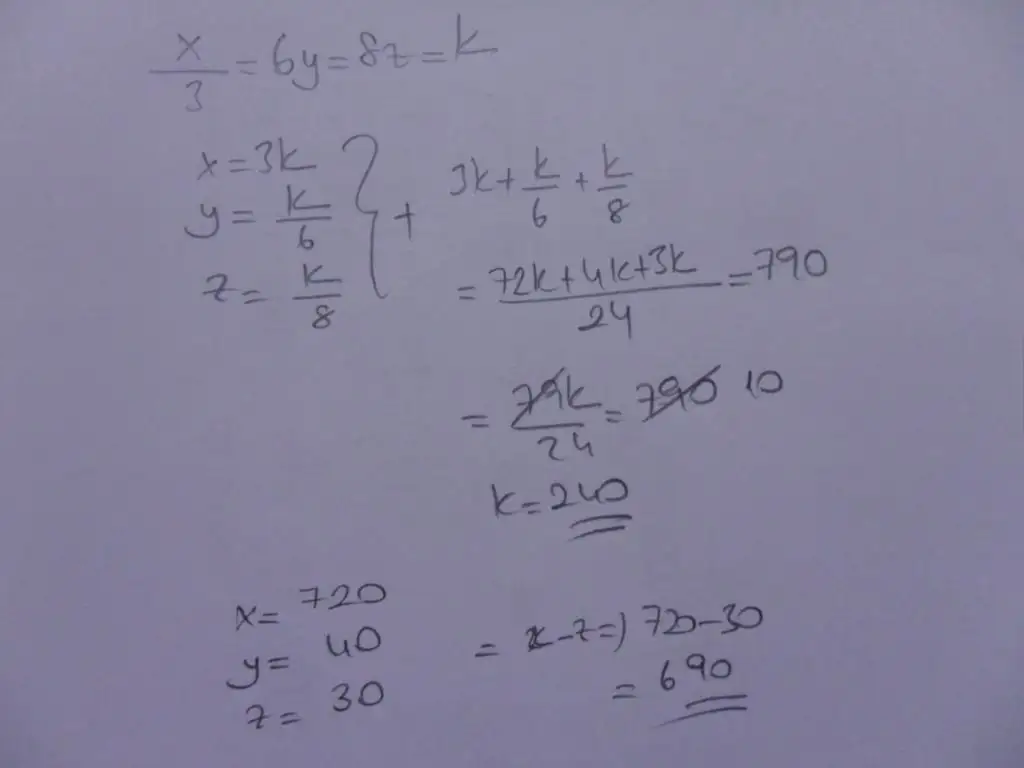 x/3 = 6y = 8z = k
x = 3k
y = k/6
z = k/8
} +
3k + k/6 + k/8
= 72k + 4k + 3k / 24 = 790
= 79k/24 = 790 10
k = 240
x = 720
y = 40
z = 30
= x - z => 720 - 30
= 690